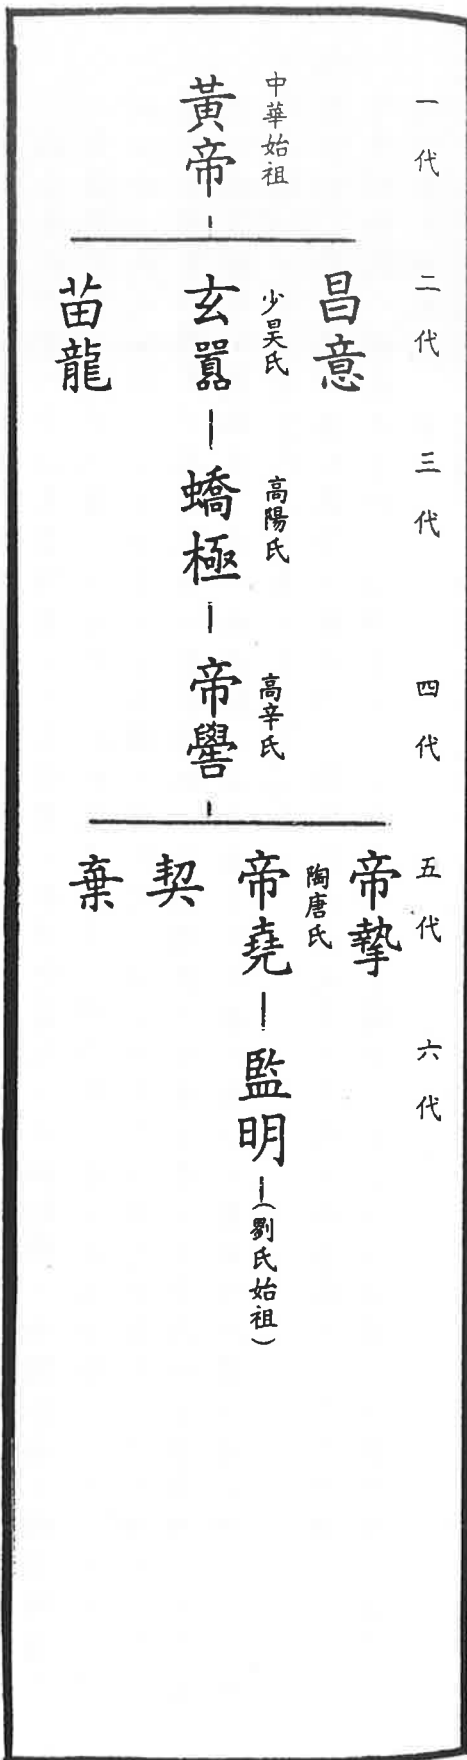 一代
二代
三代
四代
五代
六代
中華始祖
黃帝
昌意
少昊氏
玄囂
苗龍
高陽氏
蟜極
高辛氏
帝嚳
帝摯
陶唐氏
帝堯
契
棄
監明
(劉氏始祖)